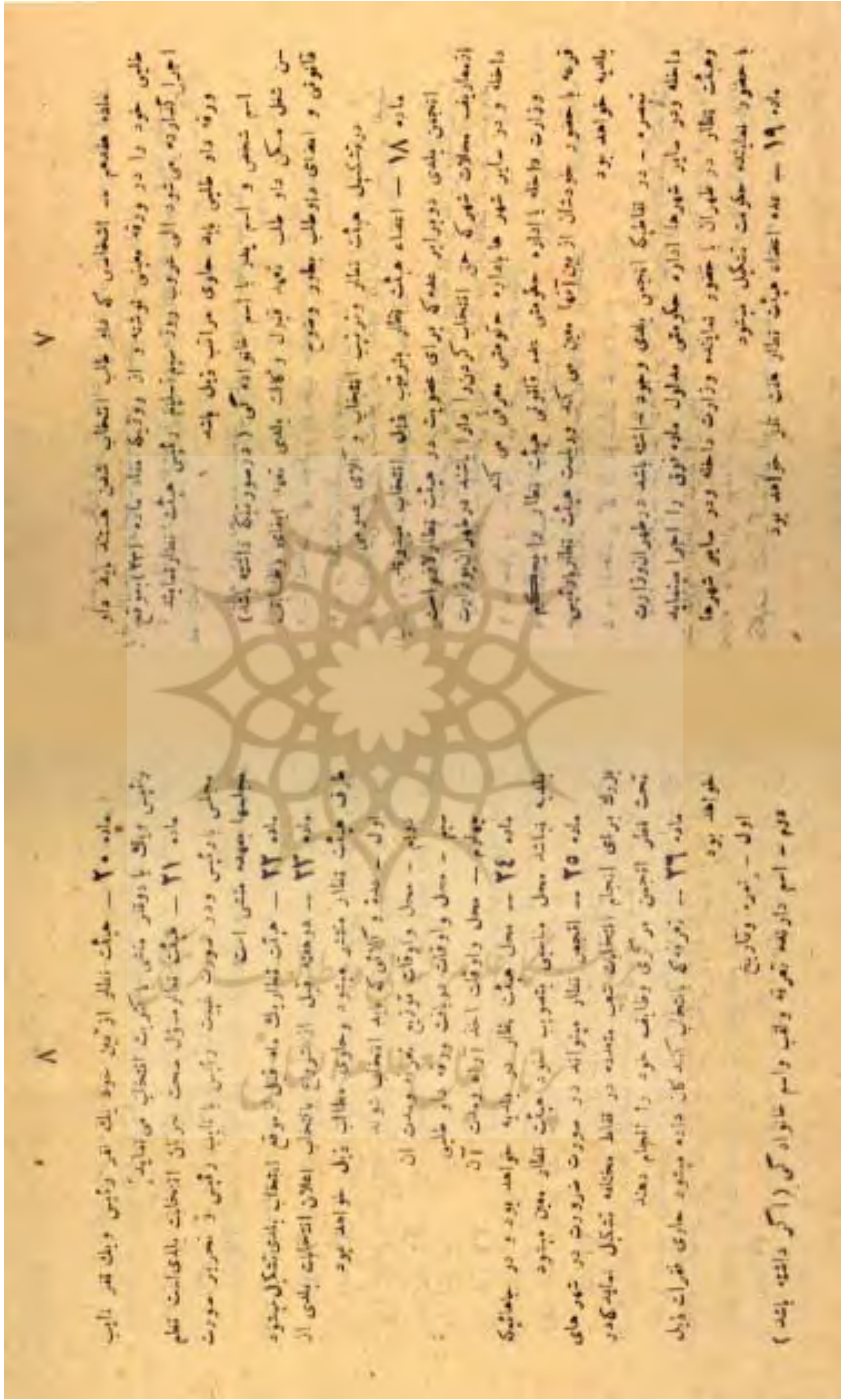 ۷
ماده هفدهم — اشخاصی که داو طلب انتخاب شدن هستند باید داو
طلبی خود را در ورقه معینی نوشته و از روزیکه مفاد ماده (۲۳) بموقع
اجرا گذارده می‌شود الی غروب روز سیم تسلیم رئیس هیئت نظار نمایند
ورقه داو طلبی باید حاوی مراتب ذیل باشد
اسم شخص و اسم پدر با اسم خانواده گی (در صورتیکه داشته باشد)
سن شغل مسکن داو طلب تعهد قبول وکالت بلدی
قانونی و امضای داوطلب بطور وضوح
در تشکیل هیئت نظار و ترتیب انتخاب و کلای عمومی
ماده ۱۸ — اعضاء هیئت نظار بترتیب ذیل انتخاب میشوند
انجمن بلدی دو برابر عده که برای عضویت در هیئت نظار لازم است
از معاریف محلات شهر که حق انتخاب کردن را دارا باشند در طهران بوزارت
داخله و در سایر شهر ها باداره حکومتی معرفی می کند
وزارت داخله یا اداره حکومتی عده قانونی هیئت نظار را بحکم
قرعه با حضور خودشان از بین آنها معین می کند وریاست هیئت نظار با رئیس
بلدیه خواهد بود
تبصره – در نقاطیکه انجمن بلدی وجود نداشته باشد در طهران وزارت
داخله ودر سایر شهرها اداره حکومتی مدلول ماده فوق را اجرا مینماید
وهیئت نظار در طهران با حضور نماینده وزارت داخله ودر سایر شهرها
با حضور نماینده حکومت تشکیل میشود
ماده ۱۹ — عده اعضاء هیئت نظار هفت نفر خواهد بود
۸
ماده ۲۰ — هیئت نظار از بین خود یك نفر رئیس ویك نفر نایب
رئیس ویك یا دو نفر منشی با اکثریت انتخاب می نماید
ماده ۲۱ — هیئت نظار مسؤل صحت جریان انتخابات بلدی است نظم
مجلس با رئیس ودر صورت غیبت رئیس با نایب رئیس و تحریر صورت
مجلسها بعهده منشی است
ماده ۲۲ — هیئت نظار یك ماه قبل از موقع انتخاب بلدی تشکیل میشود
ماده ۲۳ — دو هفته قبل از شروع بانتخاب اعلان انتخابات بلدی از
طرف هیئت نظار منتشر میشود وحاوی مطالب ذیل خواهد بود
اول – عده و کلائی که باید انتخاب شوند
دویم – محل واوقات توزیع تعرفه ومدت آن
سیم – محل واوقات دریافت ورقه داو طلبی
چهارم – محل واوقات اخذ آراء ومدت آن
ماده ۲۴ — محل هیئت نظار در بلدیه خواهد بود و در جاهائیکه
بلدیه نباشد محل مناسبی بتصویب خود هیئت نظار معین میشود
ماده ۲۵ — انجمن نظار میتواند در صورت ضرورت در شهر های
بزرك برای انجام انتخابات شعب متعدده در نقاط مختلفه تشکیل نماید که در
تحت نظر انجمن مرکزی وظایف خود را انجام دهند
ماده ۲۶ — تعرفه که بانتخاب کنندگان داده میشود حاوی فقرات ذیل
خواهد بود
اول – نمره وتاریخ
دوم – اسم دارنده تعرفه ولقب واسم خانواد گی (اگر داشته باشد)